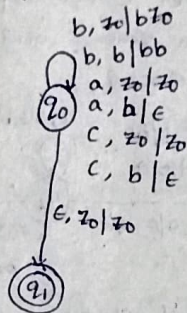 b, z₀|bz₀
b, b|bb
a, z₀|z₀
a, b|ε
c, z₀|z₀
c, b|ε
q₀
ε, z₀|z₀
q₁